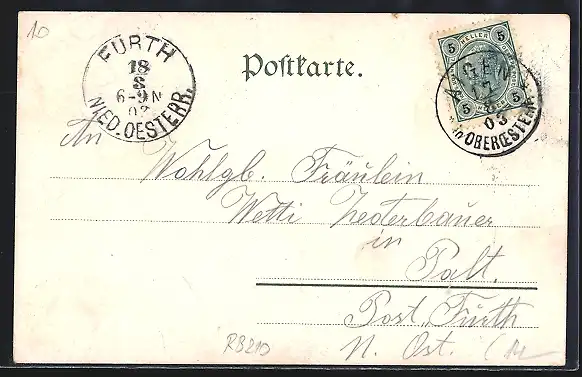 10
FURTH
18
8
6-9N
03
NIED.OESTERR.
Postkarte.
5 HELLER 5
5 5
17
8
03
in OBERŒSTERR.
An
Wohlgb. Fräulein
Wetti Zederbauer
in
Palt.
Post Furth
N. Ost.
RB210